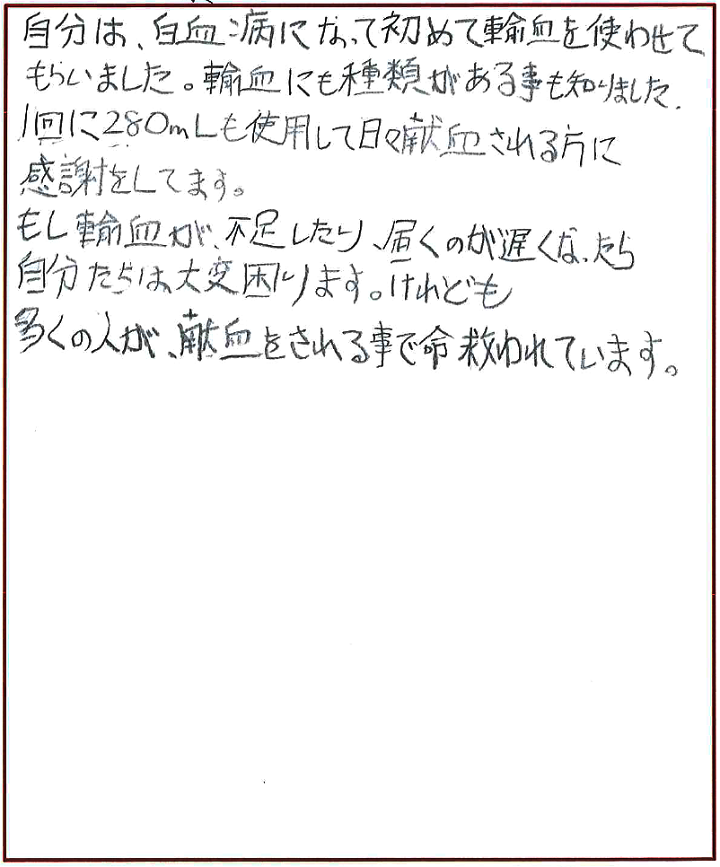 自分は、白血病になって初めて輸血を使わせて
もらいました。輸血にも種類がある事も知りました.
1回に280mLも使用して日々献血される方に
感謝をしてます。
もし輸血が、不足したり、届くのが遅くなったら
自分たちは、大変困ります。けれども
多くの人が、献血をされる事で命救われています。